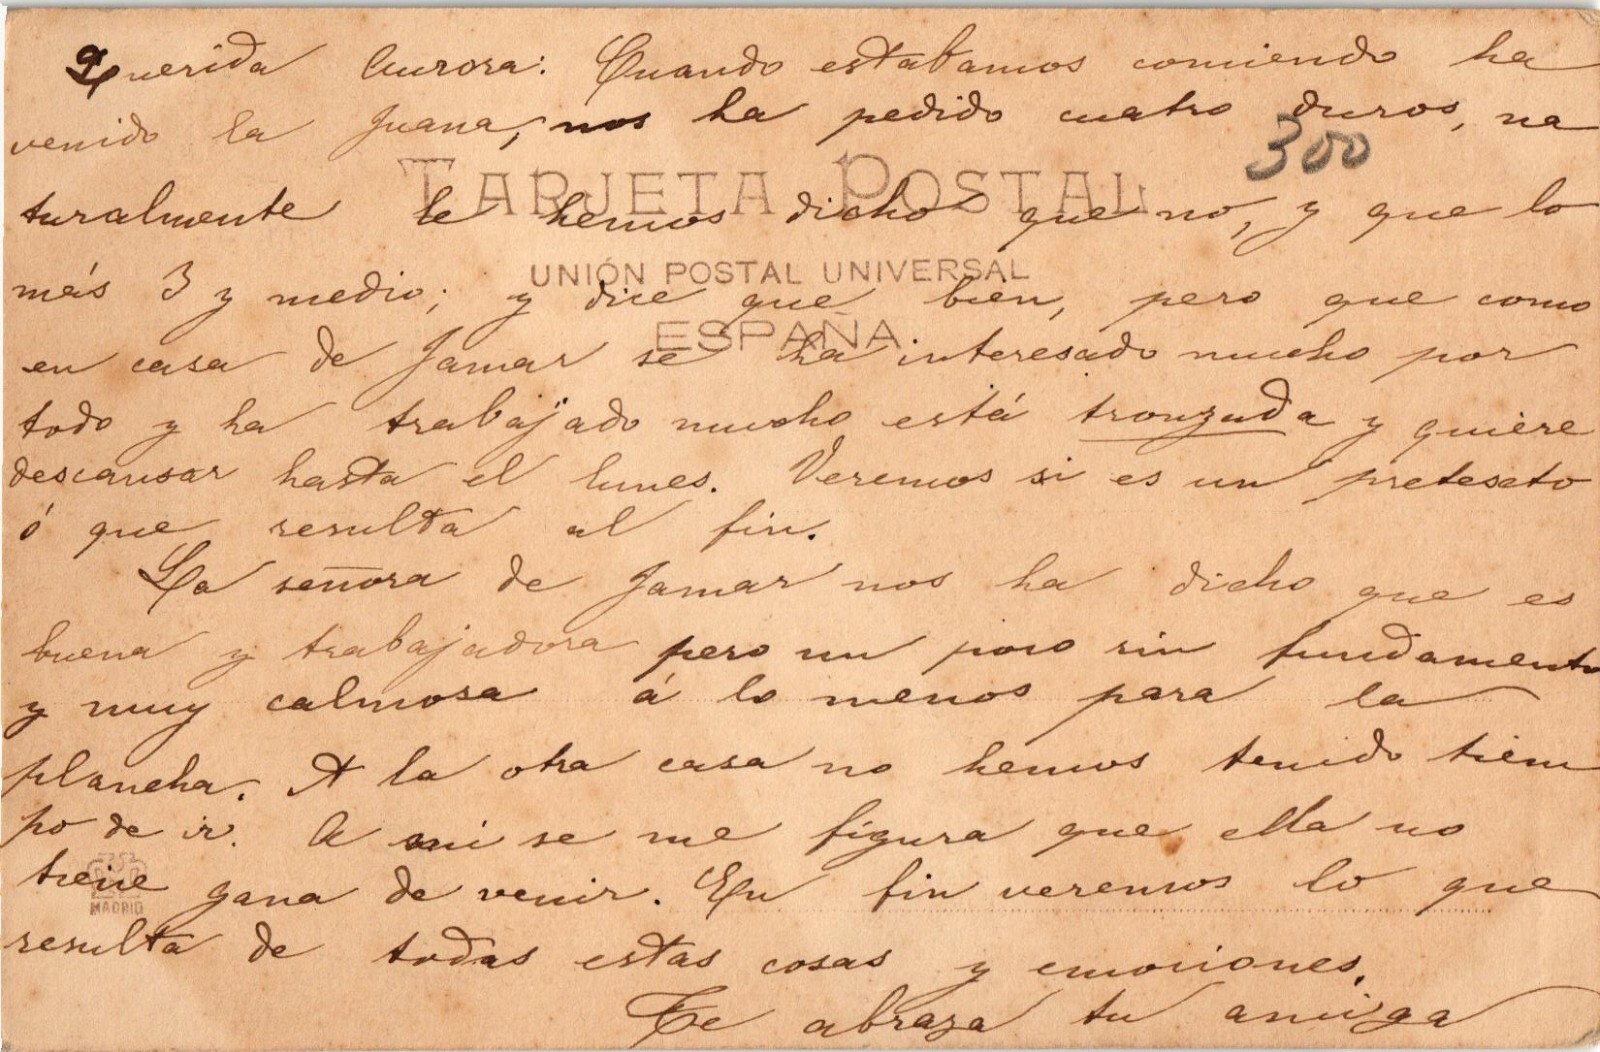 Querida Aurora: Cuando estabamos comiendo ha
venido la Juana, nos ha pedido cuatro duros, na
300
TARJETA POSTAL
turalmente le hemos dicho que no, y que lo
UNIÓN POSTAL UNIVERSAL
más 3 y medio; y dice que bien, pero que como
ESPAÑA
en casa de Jamar se ha interesado mucho por
todo y ha trabajado mucho está tronzada y quiere
descansar hasta el lunes. Veremos si es un preteseto
ó que resulta al fin.
La señora de Jamar nos ha dicho que es
buena y trabajadora pero un poco sin fundamento
y muy calmosa á lo menos para la
plancha. A la otra casa no hemos tenido tiem
po de ir. A mi se me figura que ella no
tiene gana de venir. En fin veremos lo que
MADRID
resulta de todas estas cosas y emociones.
Te abraza tu amiga